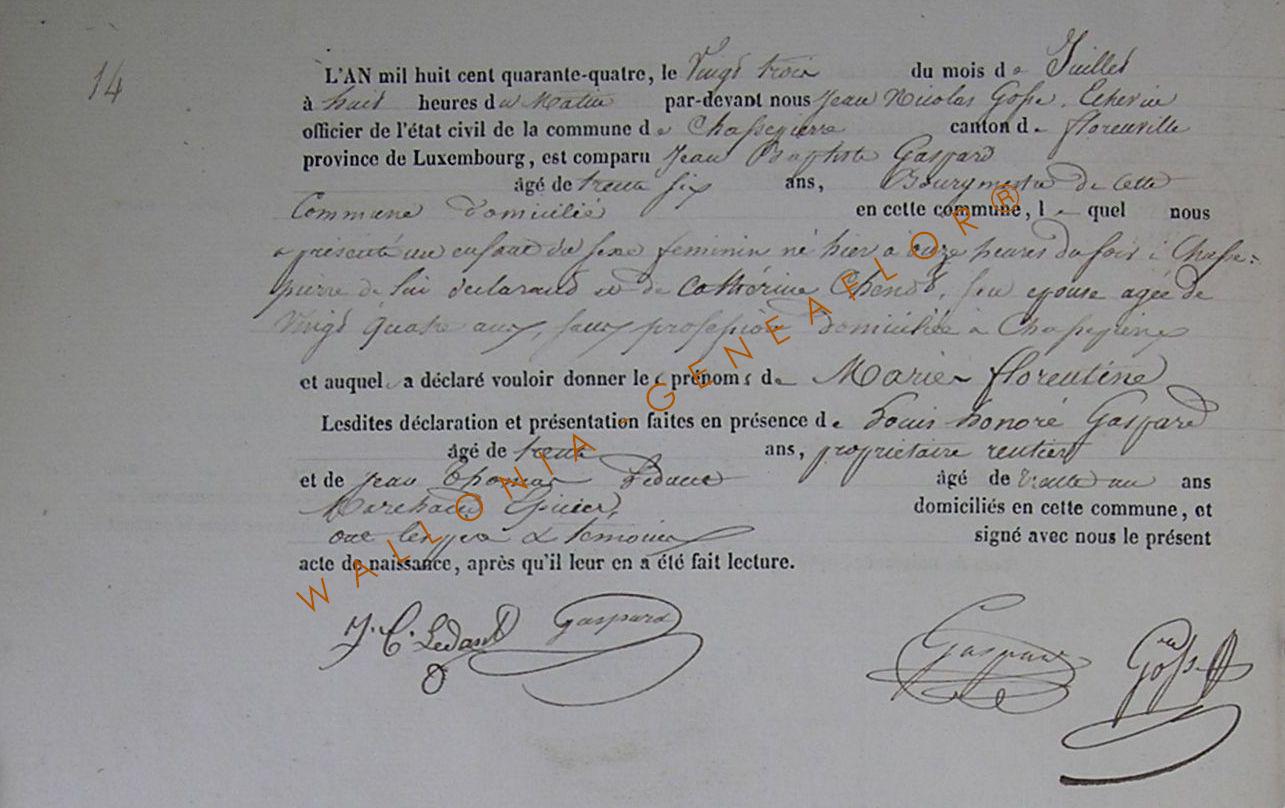 14
L'AN mil huit cent quarante-quatre, le Vingt trois du mois de Juillet
à huit heures du Matin par-devant nous Jean Nicolas Gosse, Echevin
officier de l'état civil de la commune de Chassepierre canton de florenville
province de Luxembourg, est comparu Jean Baptiste Gaspard
âgé de trente six ans, Bourgmestre de cette
Commune domicilié en cette commune, lequel nous
a présenté un enfant du sexe feminin né hier à onze heures du soir à Chasse=
pierre de lui declarant et de Cathérine Chenot, son epouse agée de
Vingt quatre ans, sans profession domiciliée à Chassepierre
et auquel a déclaré vouloir donner les prénoms de Marie florentine
Lesdites déclaration et présentation faites en présence de Louis honoré Gaspard
âgé de trente ans, propriétaire rentier
et de Jean Thomas Ledant âgé de trente un ans
Marchand Epicier, domiciliés en cette commune, et
ont les père & temoins signé avec nous le présent
acte de naissance, après qu'il leur en a été fait lecture.
J. T. Ledant Gaspard Gaspard Gosse
WALLONIA - GENEAFLOR®